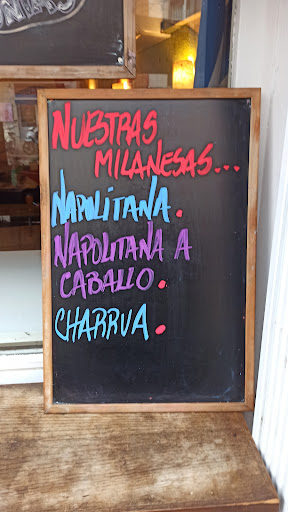 NUESTRAS
MILANESAS...
NAPOLITANA.
NAPOLITANA A
CABALLO.
CHARRUA.